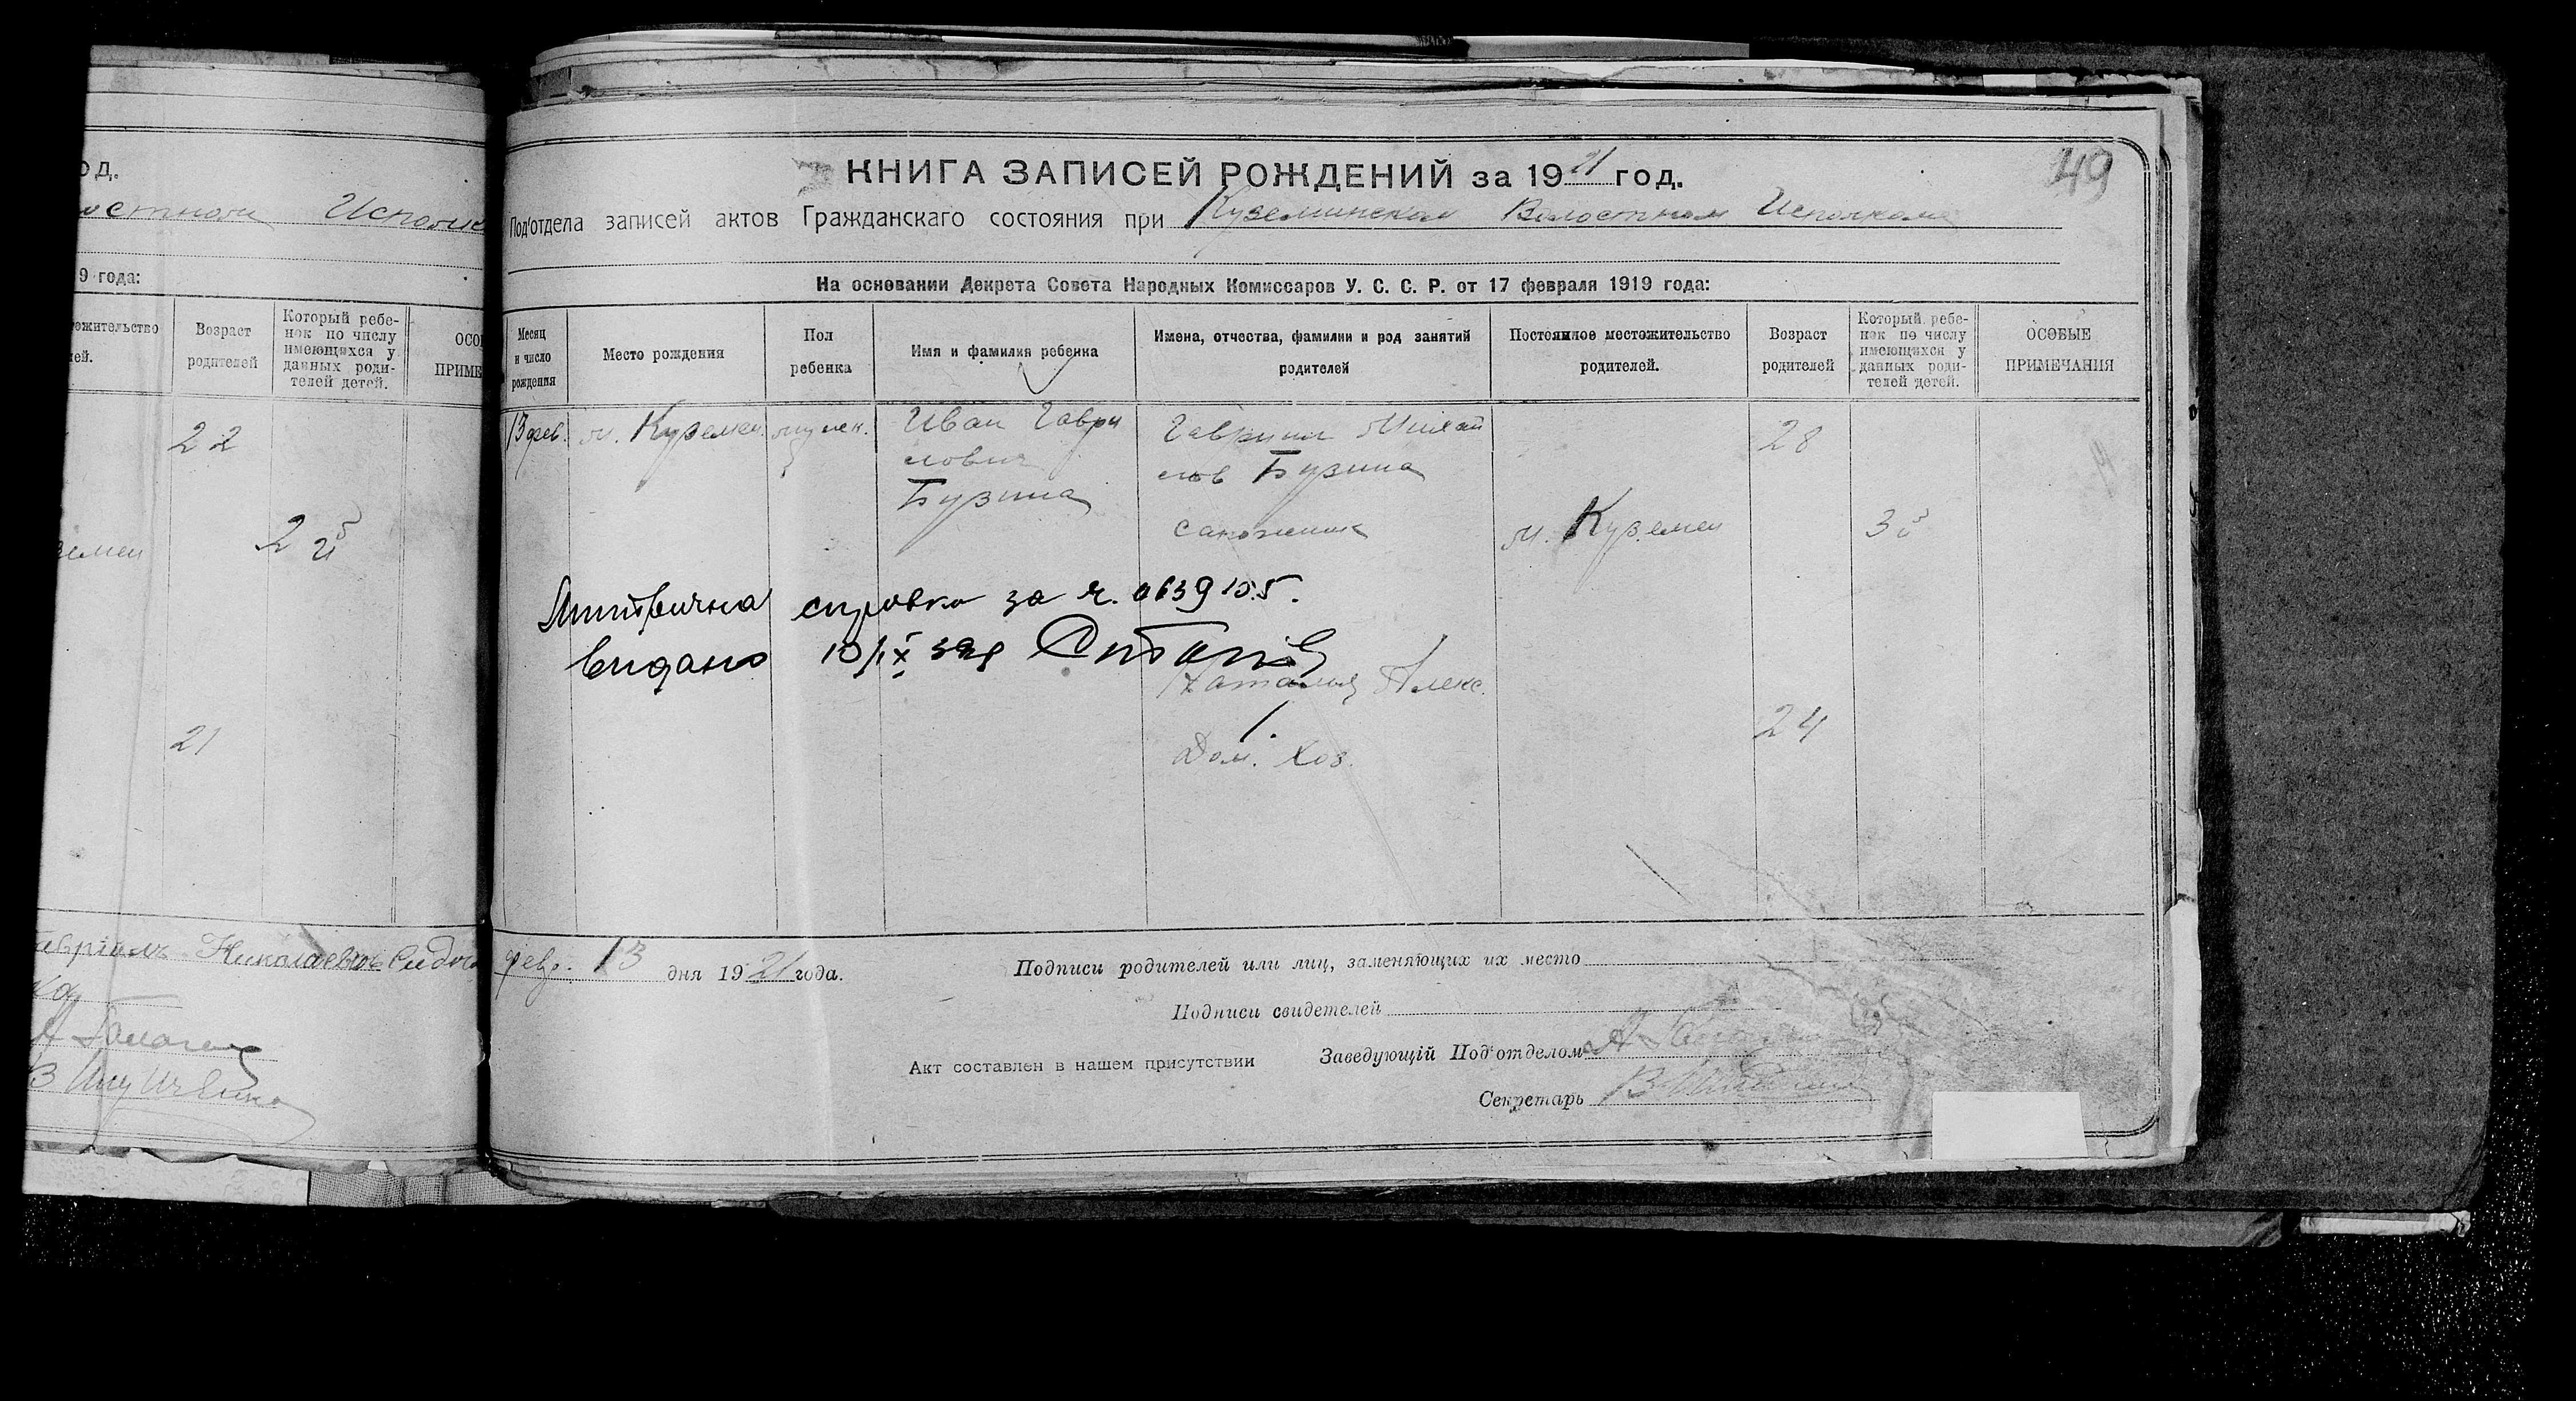 од.
Исполк
9 года:
ожительство
лей.
Возраст
родителей
Который ребе-
нок по числу
имеющихся у
данных роди-
телей детей.
ОСО
ПРИМЕ
22
земен
2й
21
Николаевичъ
49
КНИГА ЗАПИСЕЙ РОЖДЕНИЙ за 1921 год.
Под'отдела записей актов Гражданскаго состояния при Куземинском Волостном Исполкоме
На основании Декрета Совета Народных Комиссаров У. С. С. Р. от 17 февраля 1919 года:
Месяц
и число
рождения
Место рождения
Пол
ребенка
Имя и фамилия ребенка
Имена, отчества, фамилии и род занятий
родителей
Постоянное местожительство
родителей.
Возраст
родителей
Который ребе-
нок по числу
имеющихся у
данных роди-
телей детей.
ОСОБЫЕ
ПРИМЕЧАНИЯ
13 фев.
м. Куземен
мужск.
Иван Гаври
лович
Бузина
Гавриил Михай
лов Бузина
сапожник
м. Куземен
28
3й
справка за ч. 063910.5.
видано 10/IX
Наталия Алекс.
Дом. Хоз.
24
февр. 13 дня 1921 года.
Подписи родителей или лиц, заменяющих их место
Подписи свидетелей
Акт составлен в нашем присутствии
Заведующій Под'отделом
Секретарь